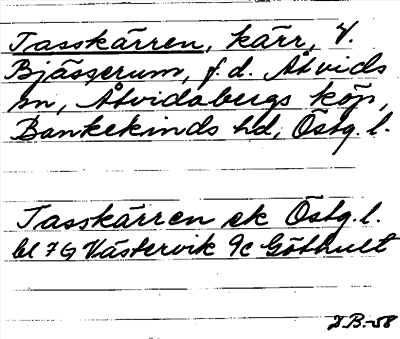 Tasskärren, kärr, V.
Bjässerum, f.d. Åtvids
sn, Åtvidabergs köp,
Bankekinds hd, Östg. l.
Tasskärren ek Östg. l.
bl 7G Västervik 9c Göthult
J.B.-58